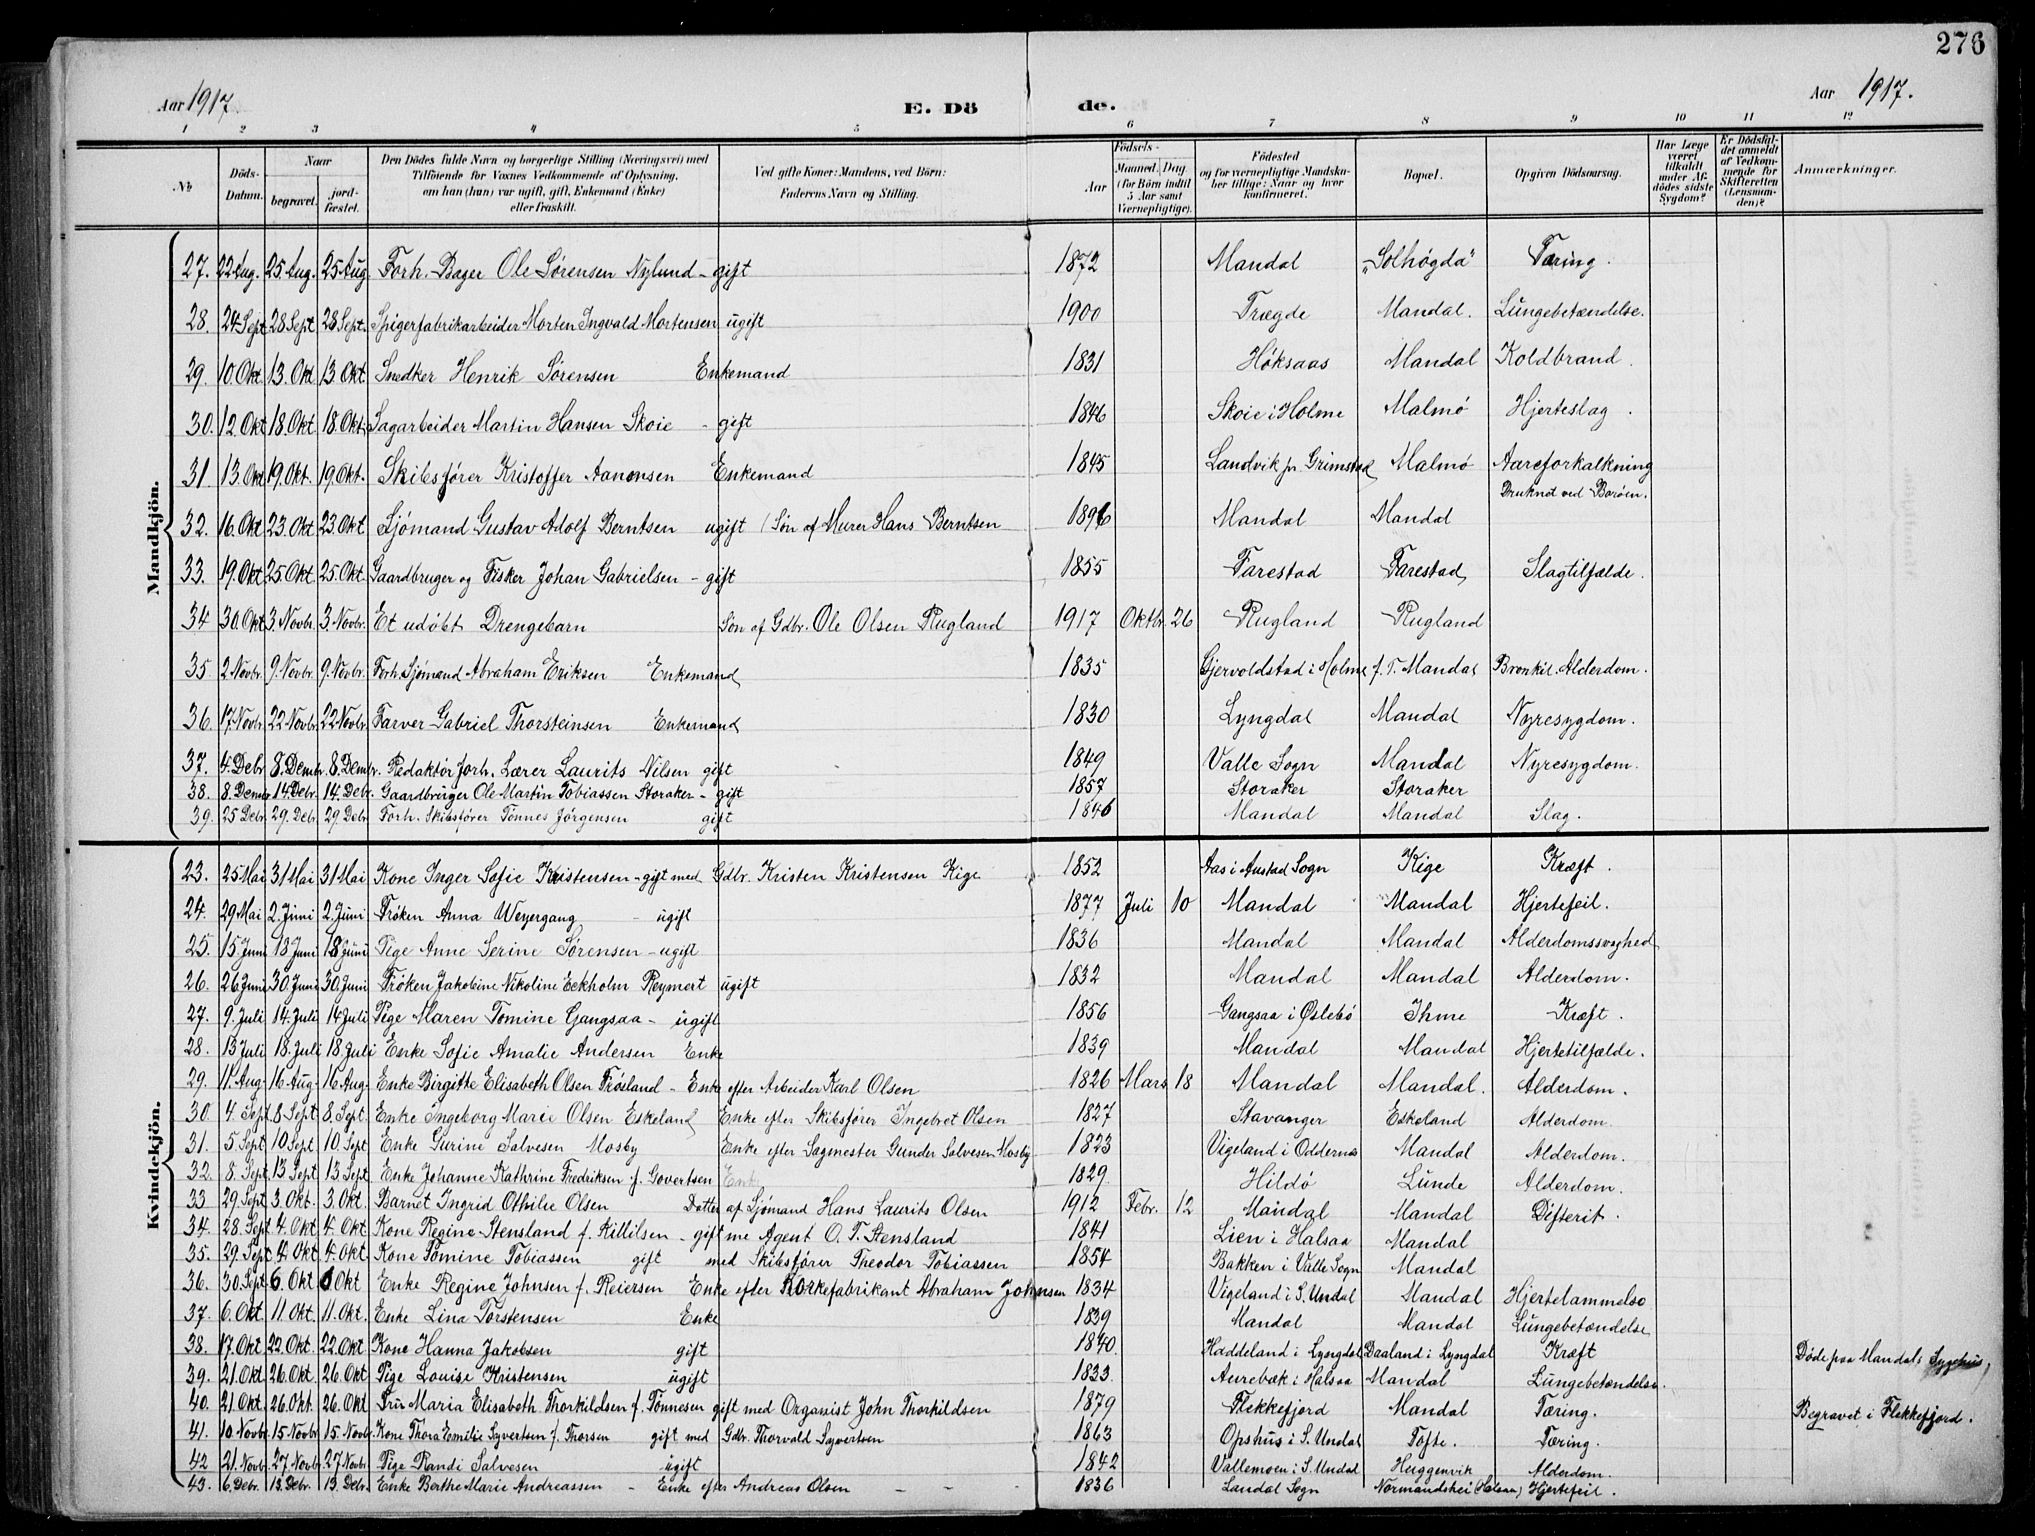 276
Aar 1917. E. Dö de. Aar 1917.
1 2 3 4 5 6 7 8 9 10 11 12
№ Döds-Datum. Naar begravet. jord-fæstet. Den Dödes fulde Navn og borgerlige Stilling (Næringsvei) med Tilföiende for Voxnes Vedkommende af Oplysning, om han (hun) var ugift, gift, Enkemand (Enke) eller fraskilt. Ved gifte Koner: Mandens, ved Börn: Faderens Navn og Stilling. Födsels- Aar Maaned. Dag. (for Börn indtil 5 Aar samt Værnepligtige). Födested og for værnepligtige Mandska-ber tillige: Naar og hvor konfirmeret. Bopæl. Opgiven Dödsaarsag. Har Læge været tilkaldt under Af-dödes sidste Sygdom? Er Dödsfal-det anmeldt af Vedkom-mende for Skifteretten (Lensman-den)? Anmærkninger.
Mandkjön.
27. 22 Aug. 25 Aug. 25 Aug. Forh. Bager Ole Sørensen Nylund - gift 1872 Mandal "Solhøgda" Tæring.
28. 24 Sept 28 Sept 28 Sept. Spigerfabrikarbeider Morten Ingvald Mortensen ugift 1900 Trægde Mandal. Lungebetændelse.
29. 10. Okt. 13. Okt 13 Okt. Snedker Henrik Sørensen Enkemand 1831 Høksaas Mandal Koldbrand.
30. 12. Okt 18. Okt 18. Okt. Sagarbeider Martin Hansen Skoie - gift 1846 Skoie i Holme Malmø Hjerteslag.
31 13. Okt 19. Okt. 19. Okt. Skibsfører Kristoffer Aanensen Enkemand 1845 Landvik pr. Grimstad Malmø Aareforkalkning
32. 16. Okt 23. Okt 23. Okt Sjømand Gustav Adolf Berntsen ugift (Søn af Murer Hans Berntsen 1896 Mandal Mandal Druknet ved Borøen.
33. 19. Okt 25 Okt 25. Okt. Gaardbruger og Fisker Johan Gabrielsen - gift 1855 Farestad Farestad, Slagtilfælde.
34 30. Okt 3. Novbr. 3. Novbr. Et udøbt Drengebarn Søn af Gdbr. Ole Olsen Rugland 1917 Oktbr. 26 Rugland Rugland
35. 2. Novbr. 9. Novbr. 9. Novbr. Forh. Sjømand Abraham Eriksen Enkemand 1835 Gjervoldstad i Holme f. T. Mandal Bronkit. Alderdom.
36. 17. Novbr. 22. Novbr. 22 Novbr. Farver Gabriel Thorsteinsen Enkemand 1830 Lyngdal Mandal Nyresygdom.
37. 4. Debr 8. Dembr. 8. Dembr. Redaktør forh. Lærer Laurits Nilsen gift 1849 Valle Sogn Mandal Nyresygdom.
38. 8. Dembr 14. Debr. 14. Debr. Gaardbruger Ole Martin Tobiassen Storaker - gift 1857 Storaker Storaker
39. 25 Debr. 29. Debr. 29. Debr Forh. Skibsfører Tønnes Jørgensen gift 1846 Mandal Mandal Slag.
Kvindekjön.
23. 25 Mai 31 Mai 31 Mai Kone Inger Sofie Kristensen - gift med Gdbr. Kristen Kristensen Kige 1852 Aas i Austad Sogn Kige Kræft.
24. 29 Mai 2. Juni 2. Juni Frøken Anna Weyergang - ugift 1877 Juli 10 Mandal Mandal Hjertefeil.
25. 15 Juni 18 Juni 18 Juni Pige Anne Serine Sørensen - ugift 1836 Mandal Mandal Alderdomssvaghed
26. 26 Juni 30. Juni 30. Juni Frøken Jakobine Nikoline Eckholm Reymert ugift 1832 Mandal Mandal Alderdom.
27. 9. Juli 14. Juli 14 Juli Pige Maren Tomine Gangsaa - ugift 1856 Gangsaa i Øslebø Ihme Kræft.
28. 13 Juli 18. Juli 18 Juli Enke Sofie Amalie Andersen Enke 1839 Mandal Mandal Hjertetilfælde.
29. 11 Aug. 16 Aug. 16 Aug. Enke Birgitte Elisabeth Olsen Frøsland - Enke efter Arbeider Karl Olsen 1826 Mars 18 Mandal Mandal. Alderdom.
30 4. Sept. 8 Sept. 8. Sept. Enke Ingeborg Marie Olsen Eskeland Enke efter Skibsfører Ingebret Olsen 1827 Stavanger Eskeland Alderdom.
31. 5 Sept 10 Sept 10 Sept Enke Gurine Salvesen Mosby Enke efter Sagmester Gunder Salvesen Mosby 1823 Vigeland i Oddernes Mandal Alderdom.
32. 8. Sept. 13 Sept 13 Sept. Enke Johanne Kathrine Fredriksen f. Govertsen Enke 1829. Hildø Lunde Alderdom.
33 29 Sept 3. Okt. 3. Okt. Barnet Ingrid Othilie Olsen Datter af Sjømand Hans Laurits Olsen 1912 Febr. 12 Mandal Mandal Difterit.
34. 28. Sept 4. Okt 4. Okt Kone Regine Stensland f. Killilsen - gift me Agent O. T. Stensland 1841 Lien i Halsaa Mandal
35. 29. Sept 4. Okt 4. Okt. Kone Tomine Tobiassen gift med Skibsfører Theodor Tobiassen 1854 Bakken i Valle Sogn Mandal
36. 30. Sept 6. Okt 6 Okt Enke Regine Johnsen f. Reiersen Enke efter Korkefabrikant Abraham Johnsen 1834 Vigeland i S. Undal Mandal Hjertelammelse
37. 6. Okt 11. Okt. 11. Okt. Enke Lina Torstensen Enke 1839 Mandal Mandal Lungebetændelse
38. 17. Okt 22. Okt. 22. Okt Kone Hanna Jakobsen gift 1840. Haddeland i Lyngdal Daaland i Lyngdal Kræft Døde paa Mandals Sygehus,
39. 21. Okt 26. Okt. 26. Okt Pige Louise Kristensen ugift 1833. Aurebæk i Halsaa Mandal Lungebetændelse.
40. 21. Okt 26. Okt. 26. Okt Fru Maria Elisabeth Thorkildsen f. Tønnesen gift med Organist John Thorkildsen 1879 Flekkefjord Mandal Tæring. Begravet i Flekkefjord.
41. 10. Novbr 15. Novbr 15. Novbr Kone Thora Emilie Syvertsen f. Thorsen gift med Gdbr. Thorvald Syvertsen 1863 Opshus i S. Undal Tofte. Tæring.
42 21. Novbr. 27. Novbr 27 Novbr. Pige Randi Salvesen ugift 1842 Vallemoen i S. Undal Huggenvik Alderdom.
43. 6. Debr. 13. Debr. 13. Debr. Enke Berthe Marie Andreassen - Enke efter Andreas Olsen - - 1836 Landal Sogn Normandshei (Halsaa) Hjertefeil.